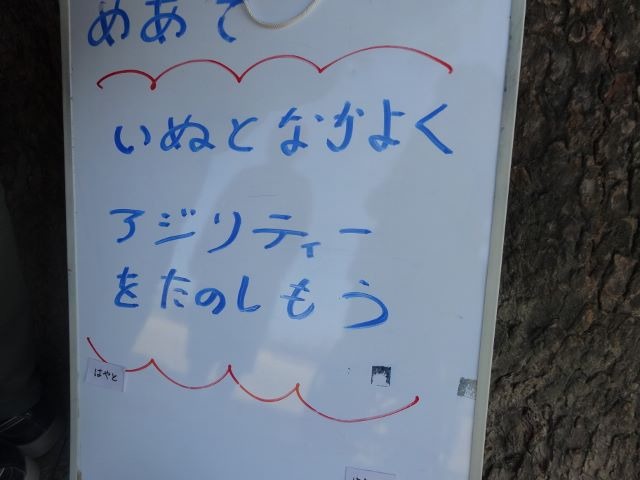 めあて
いぬとなかよく
アジリティー
をたのしもう
はやと